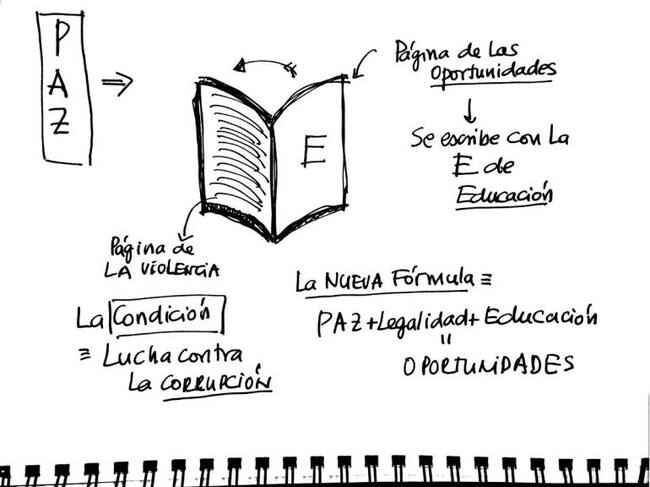 P
A
Z
Página de Las
Oportunidades
Se escribe con La
E de
Educación
E
Página de
LA VIOLENCIA
La Condición
≡ Lucha contra
La CORRUPCIÓN
La NUEVA Fórmula ≡
PAZ+Legalidad+Educación
=
OPORTUNIDADES